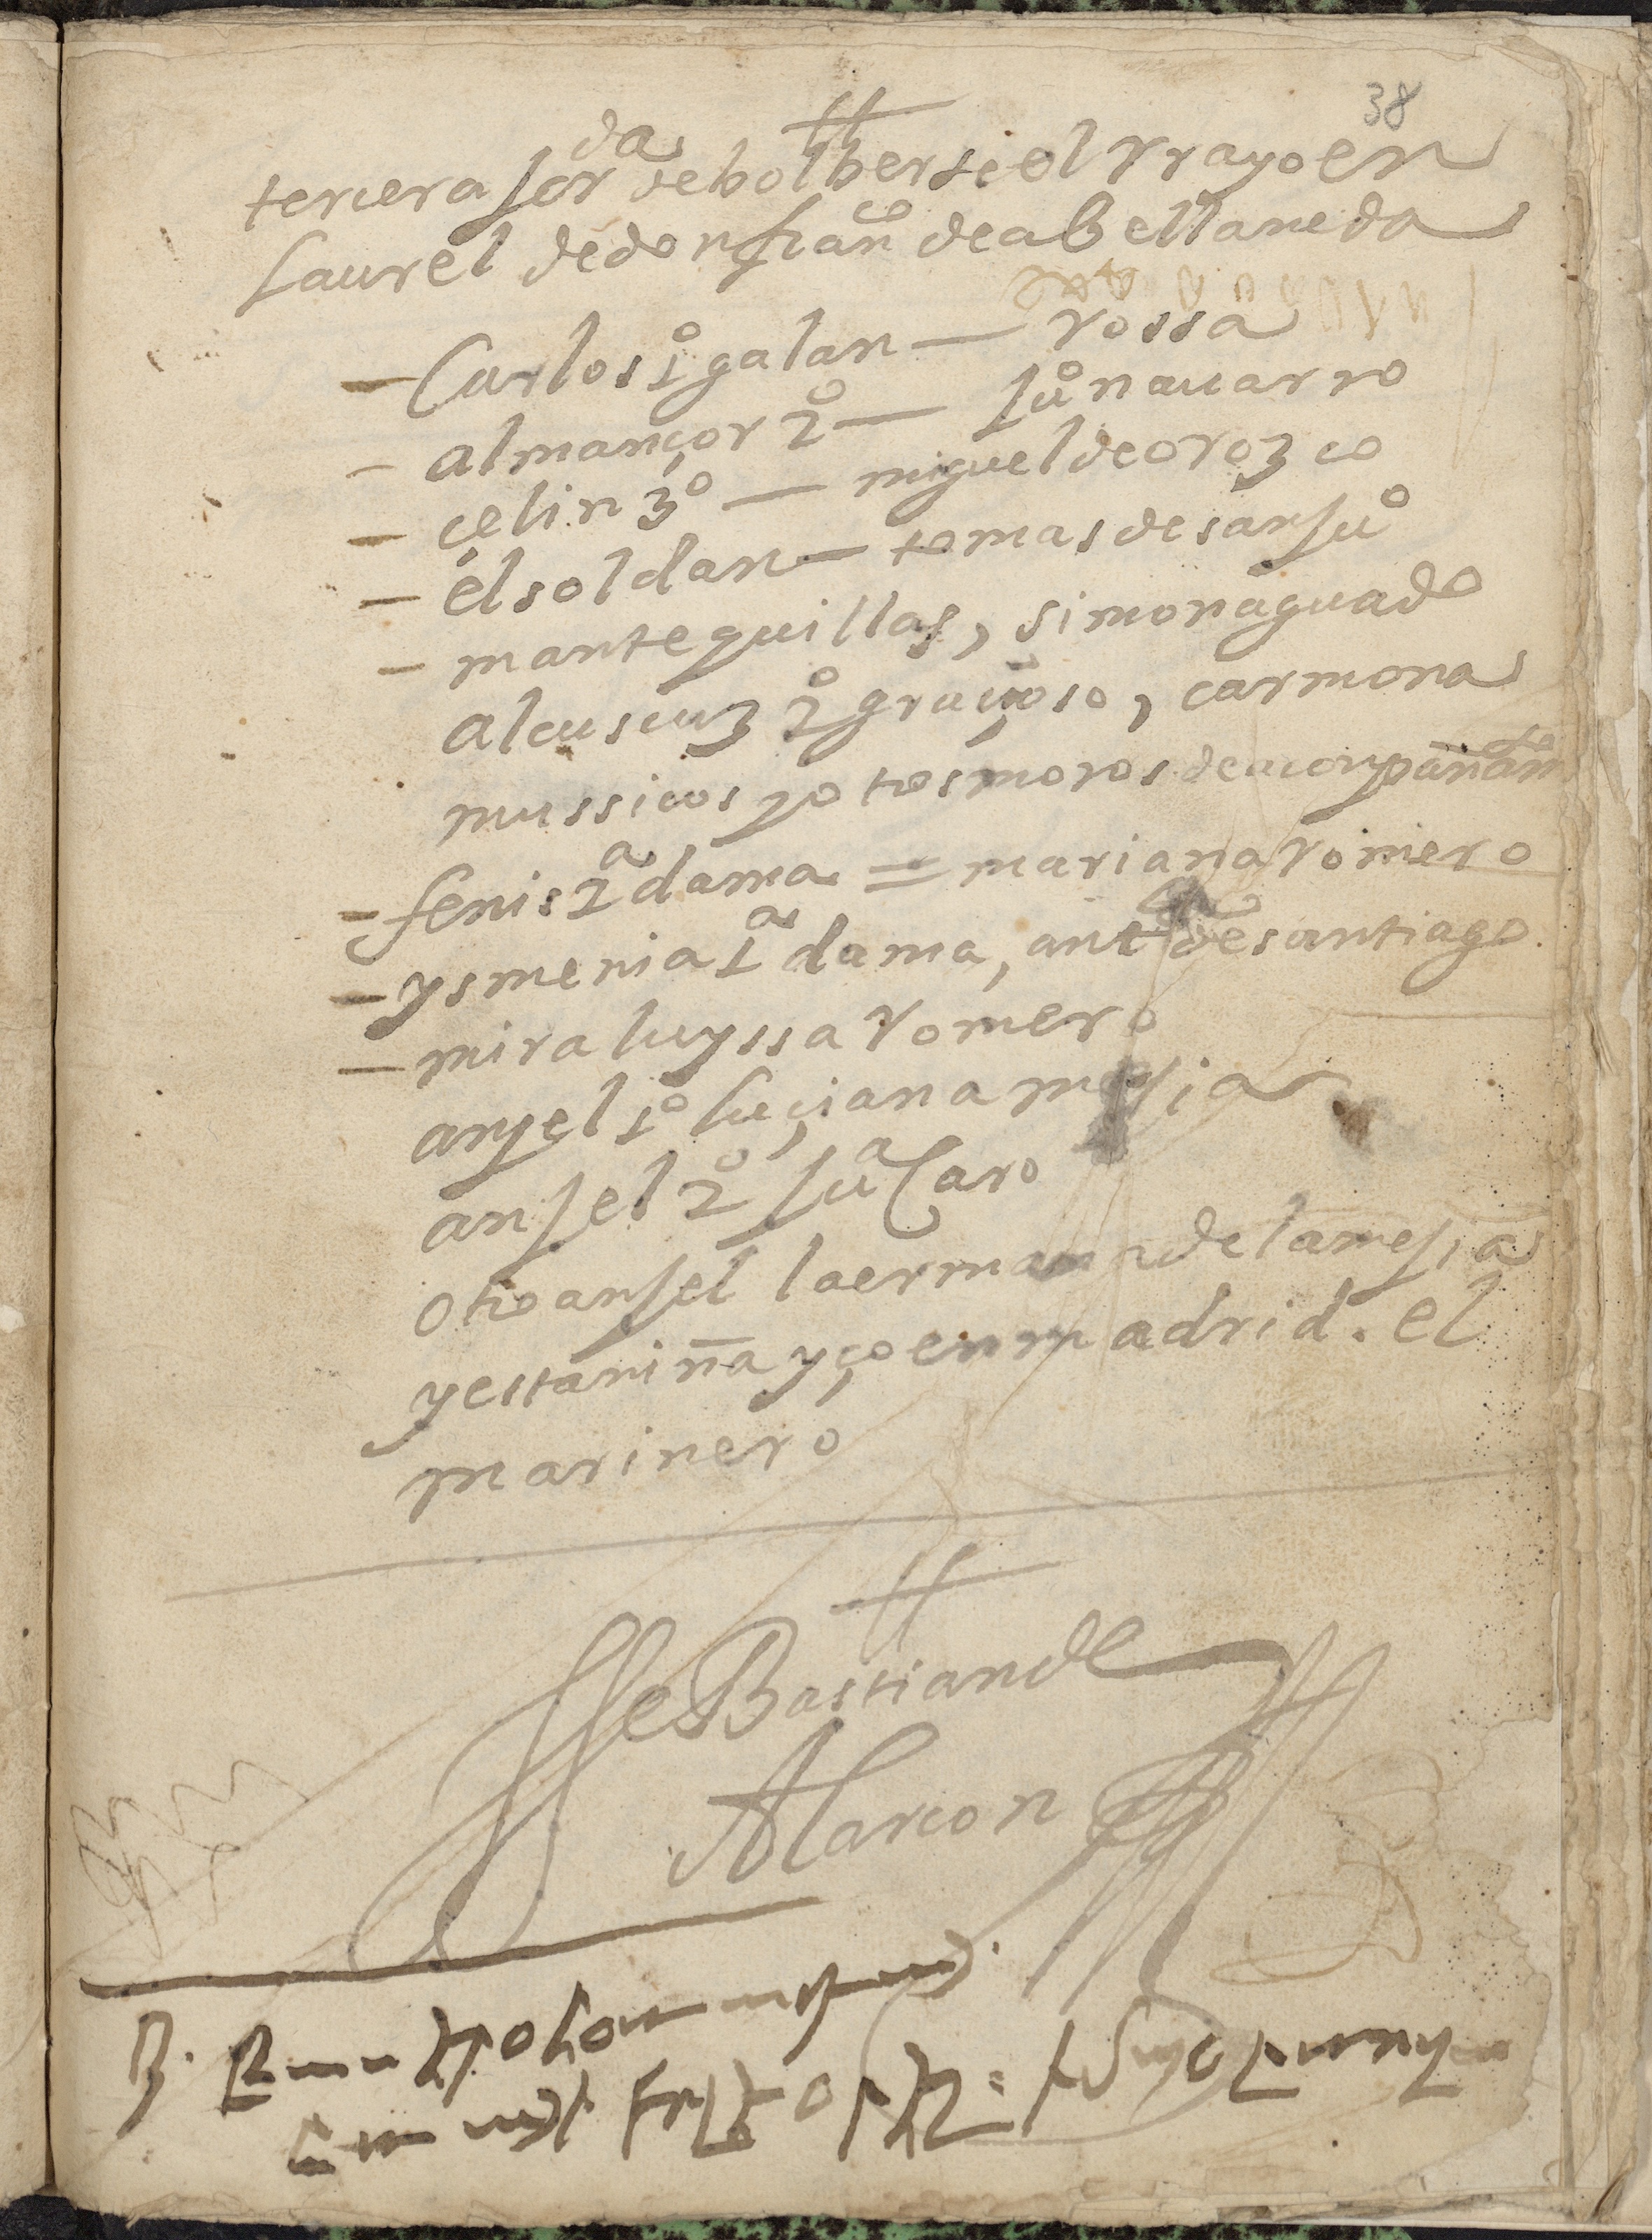 38
tercera Jor^da de bolberse el rrayo en
laurel de don fran^co de abellaneda
– Carlos 1º galan — rossa
– almançor 2º — Ju^o nauarro
– çelin 3º — miguel de orozco
– el soldan — tomas de san Ju^o
– mantequillas, simon aguado
alcuscuz 2º graçioso, carmona
mussicos y otros moros de aconpañam^to
– fenis 2ª dama = mariana romero
– ysmenia 1ª dama, ant^a de santiago
– mira luyssa romero
anjel 1º luçiana mejia
anjel 2º Ju^a Caro
otro anjel la ermana de la mejia
y esta niña yço en madrid. el
marinero
SeBastian de
Alarcon